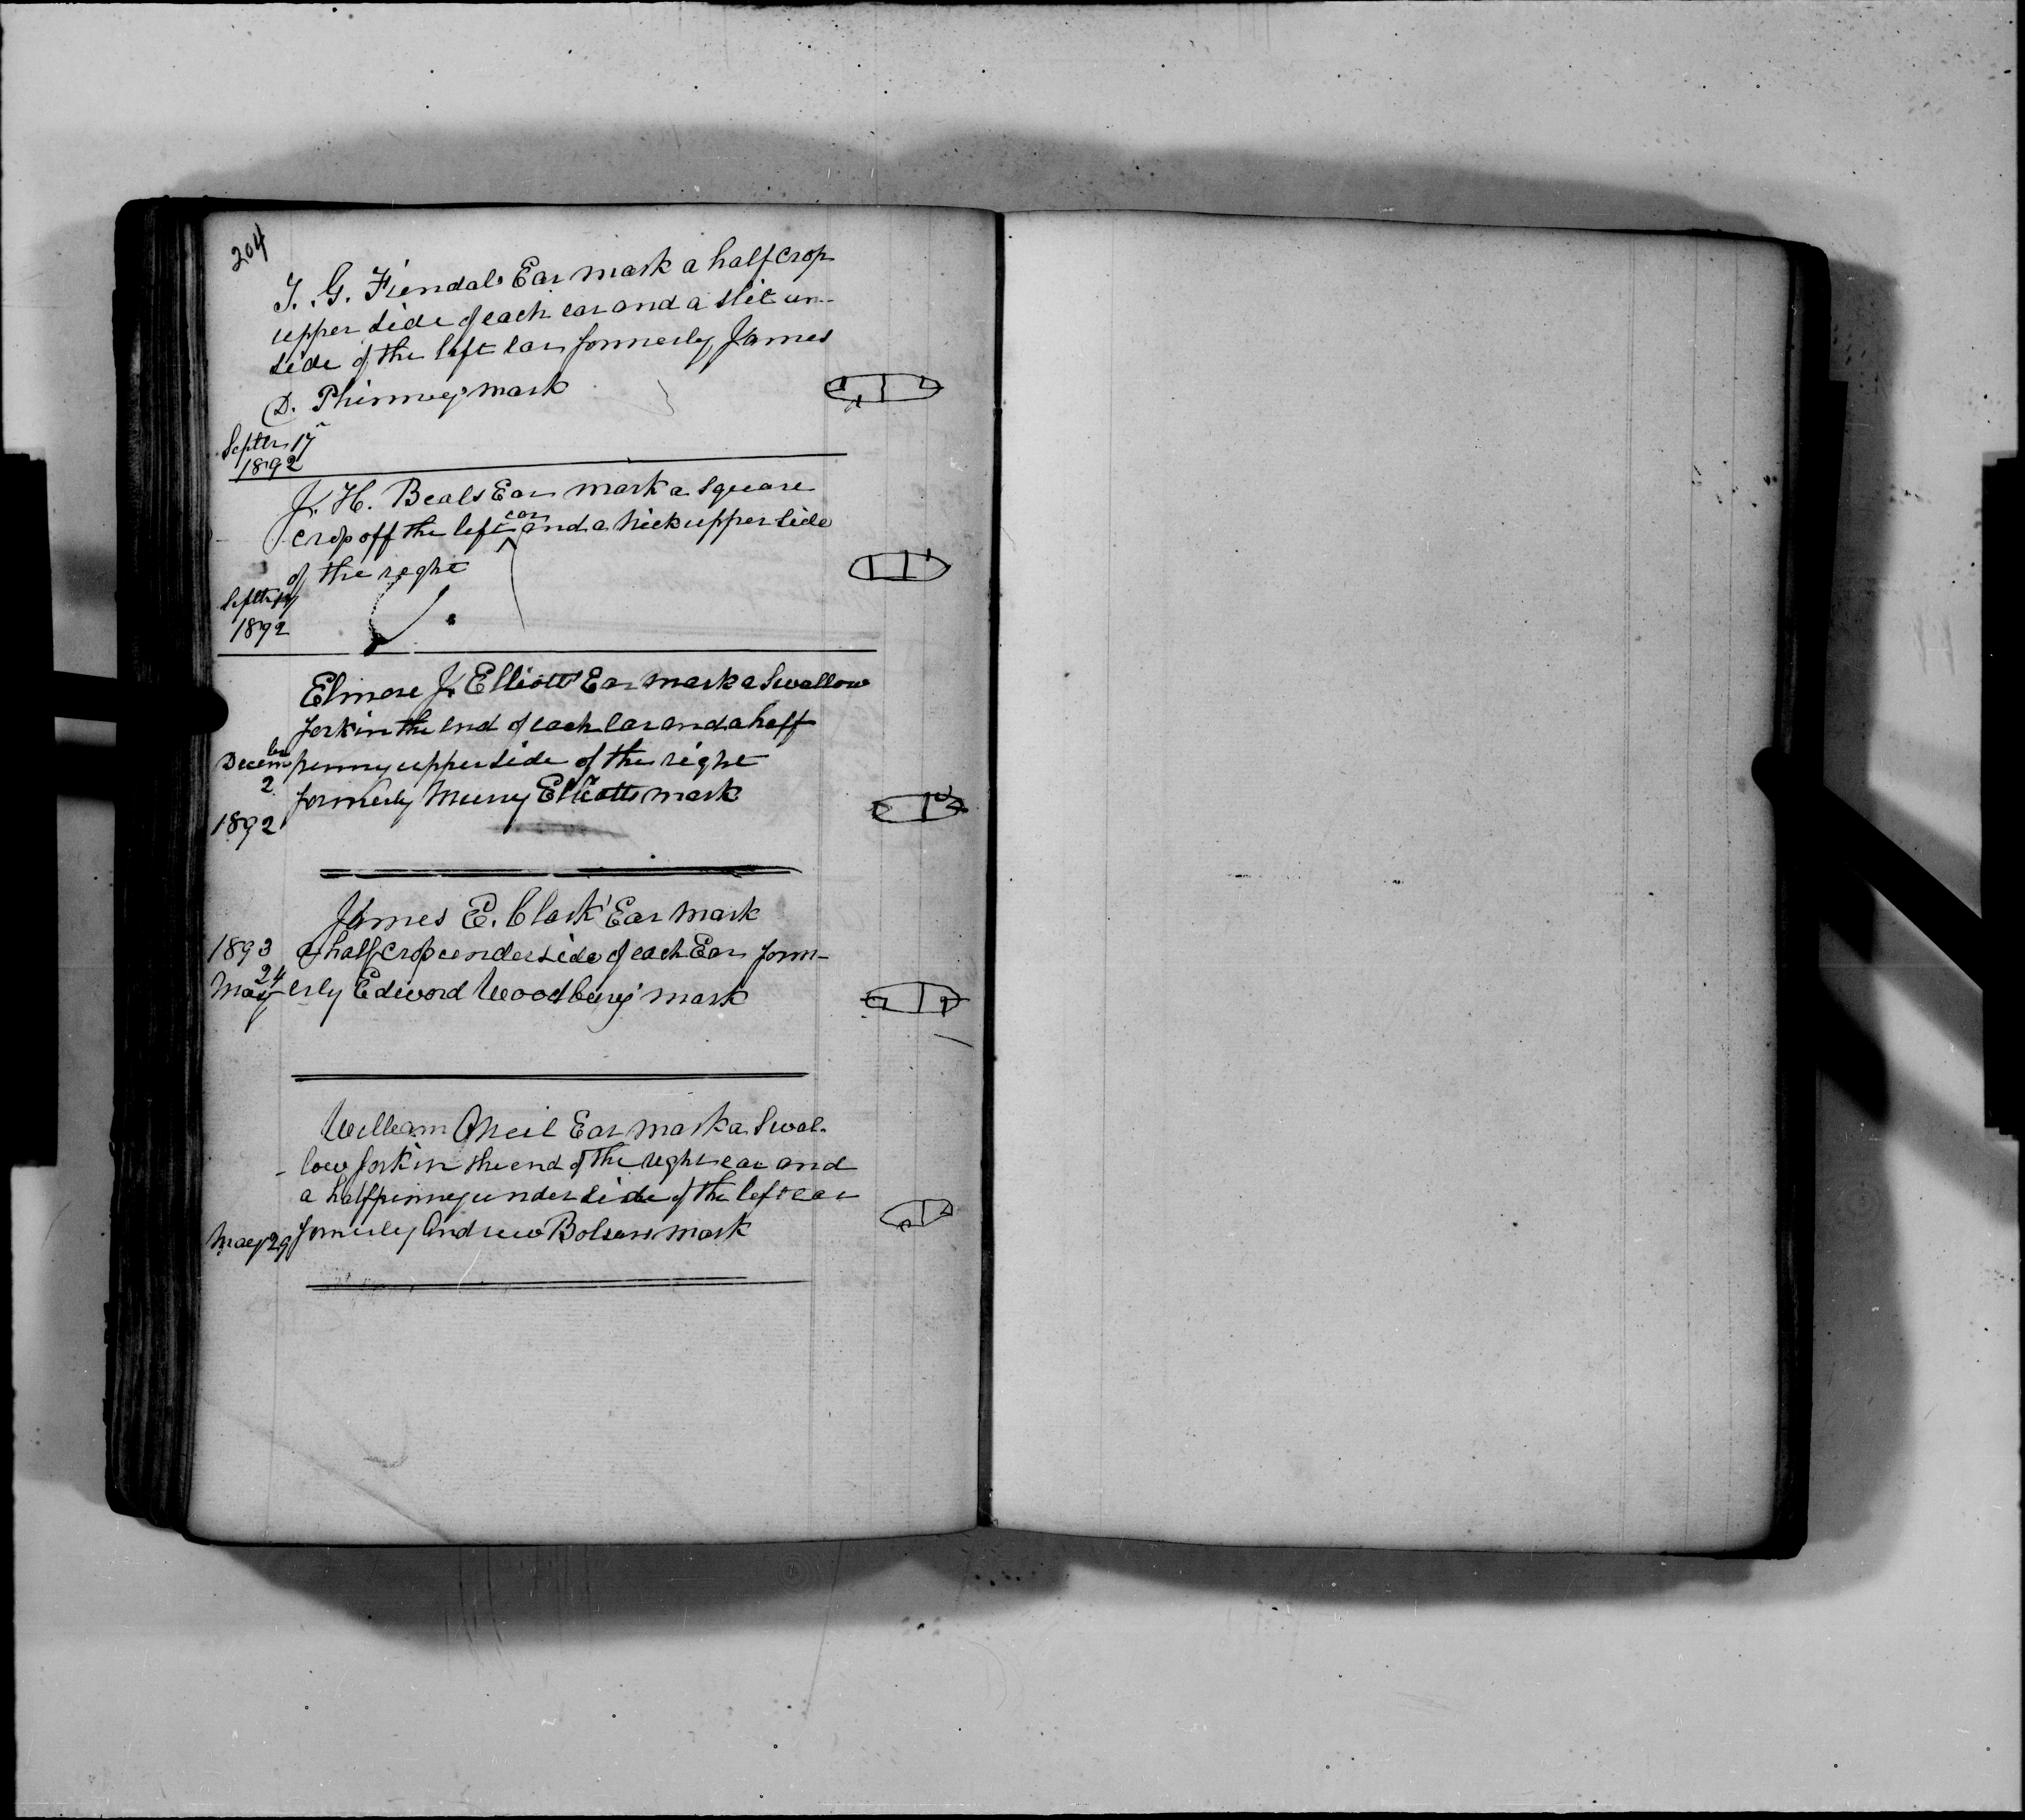 204
J. G. Fiendals Ear mark a half crop
upper side of each ear and a slit un-
side of the left ear formerly James
D. Phinney's mark
Septbr 17
1892
J. H. Beals Ear mark a Square
crop off the left ear and a nick upper side
of the right
Septbr 17
1892
Elmore J. Elliotts Ear mark a Swallow
fork in the end of each ear and a half
Decembr penny upper side of the right
2 formerly Elliotts mark
1892
James E. Clark' Ear mark
1893 a half crop under side of each Ear form-
May 24 erly Edword Woodbury' mark
William Oneil Ear mark a Swal-
low fork in the end of the right ear and
a half penny under side of the left ear
May 29 formerly Andrew Bolsers mark